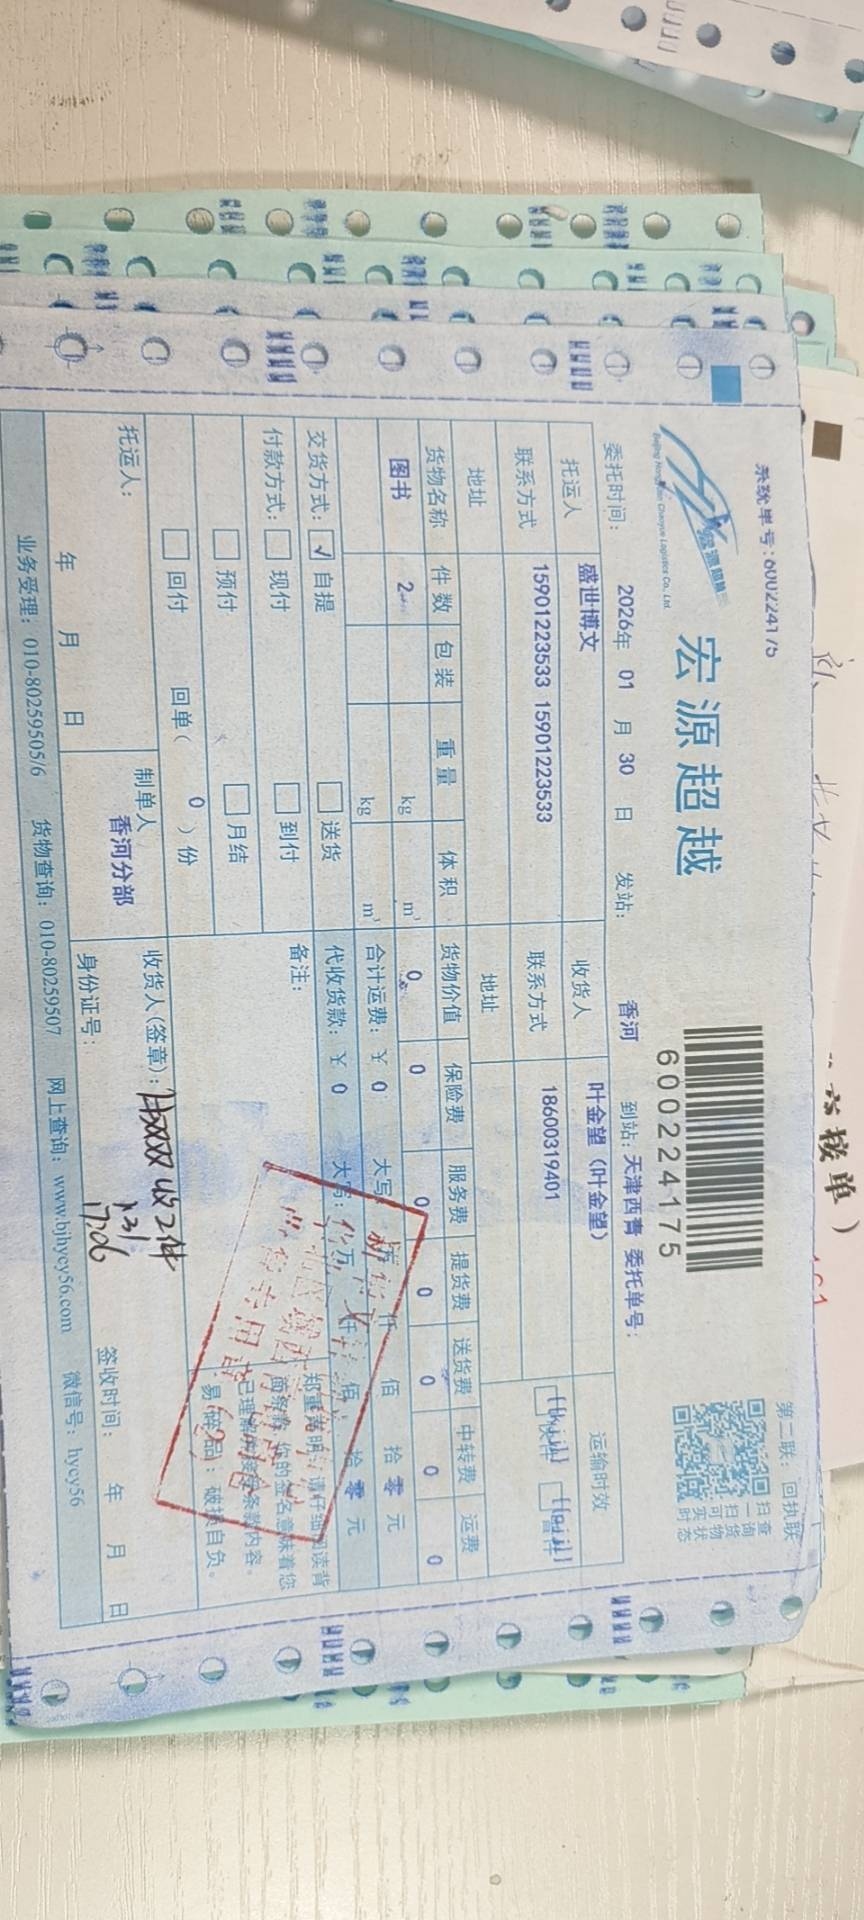 系统单号:6002224175
第二联：回执联
宏源超越
Beijing Hongyuan Chaoyue Logistics Co., Ltd
6000224175
扫一扫可实时
查询货物状态
委托时间： 2026年 01 月 30 日 发站： 香河 到站：天津西青 委托单号：
托运人 盛世博文 收货人 叶金望（叶金望） 运输时效
联系方式 15901223533 15901223533 联系方式 18600319401
地址 地址
货物名称 件数 包装 重量 体积 货物价值 保险费 服务费 提货费 送货费 中转费 运费
图书 2 kg m³ 0 0 0 0 0 0 0
kg m³ 合计运费：￥ 0 大写 仟 佰 拾 零 元
交货方式： ☑ 自提 □ 送货 代收货款：￥ 0 大写： 万 仟 佰 拾 零 元
付款方式： □ 现付 □ 到付 备注：
□ 预付 □ 月结
□ 回付 回单（ 0 ）份
郑重声明：请仔细阅读背
面条款，您的签名意味着您
已理解并接受条款内容。
易碎品：破损自负。
托运人： 制单人 香河分部 收货人(签章)： 收2件
1.31
17:06
年 月 日 身份证号： 签收时间： 年 月 日
业务受理：010-80259505/6 货物查询：010-80259507 网上查询：www.bjhycy56.com 微信号：hycy56
接单）